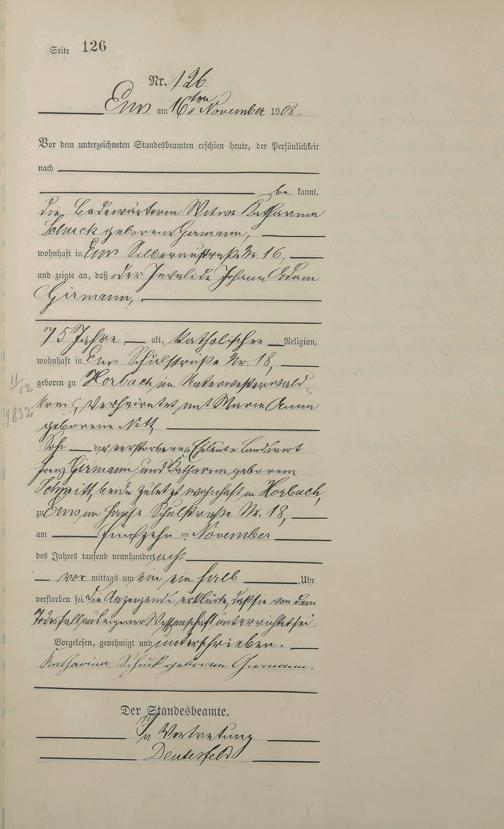 Seite 126
Nr. 126
Ems am 16ten November 1908.
Vor dem unterzeichneten Standesbeamten erschien heute, der Persönlichkeit
nach
be kannt,
die Badewärterin Witwe Katharina
Schuck geborene Girmann,
wohnhaft in Ems Silberaustraße Nr 16,
und zeigte an, daß der Invalide Johann Adam
Girmann,
75 Jahre alt, katholischer Religion,
wohnhaft in Ems Schulstraße Nr. 18,
geboren zu Horbach im Unterwesterwald-
kreis, verheiratet mit Maria Anna
geborene
11/12
1832
Sohn der verstorbenen Eheleute Landwirt
Franz Girmann und Katharina geborene
Schmitt, beide zuletzt wohnhaft in Horbach,
zu Ems im Hause Schulstraße Nr. 18,
am fünfzehn ten November
des Jahres tausend neunhundert acht
vor mittags um ein ein halb Uhr
verstorben sei. Die Anzeigende erklärte, daß sie von dem
Todesfall aus eigener Wissenschaft unterrichtet sei.
Vorgelesen, genehmigt und unterschrieben.
Katharina Schuck geborene Girmann.
Der Standesbeamte.
In Vertretung